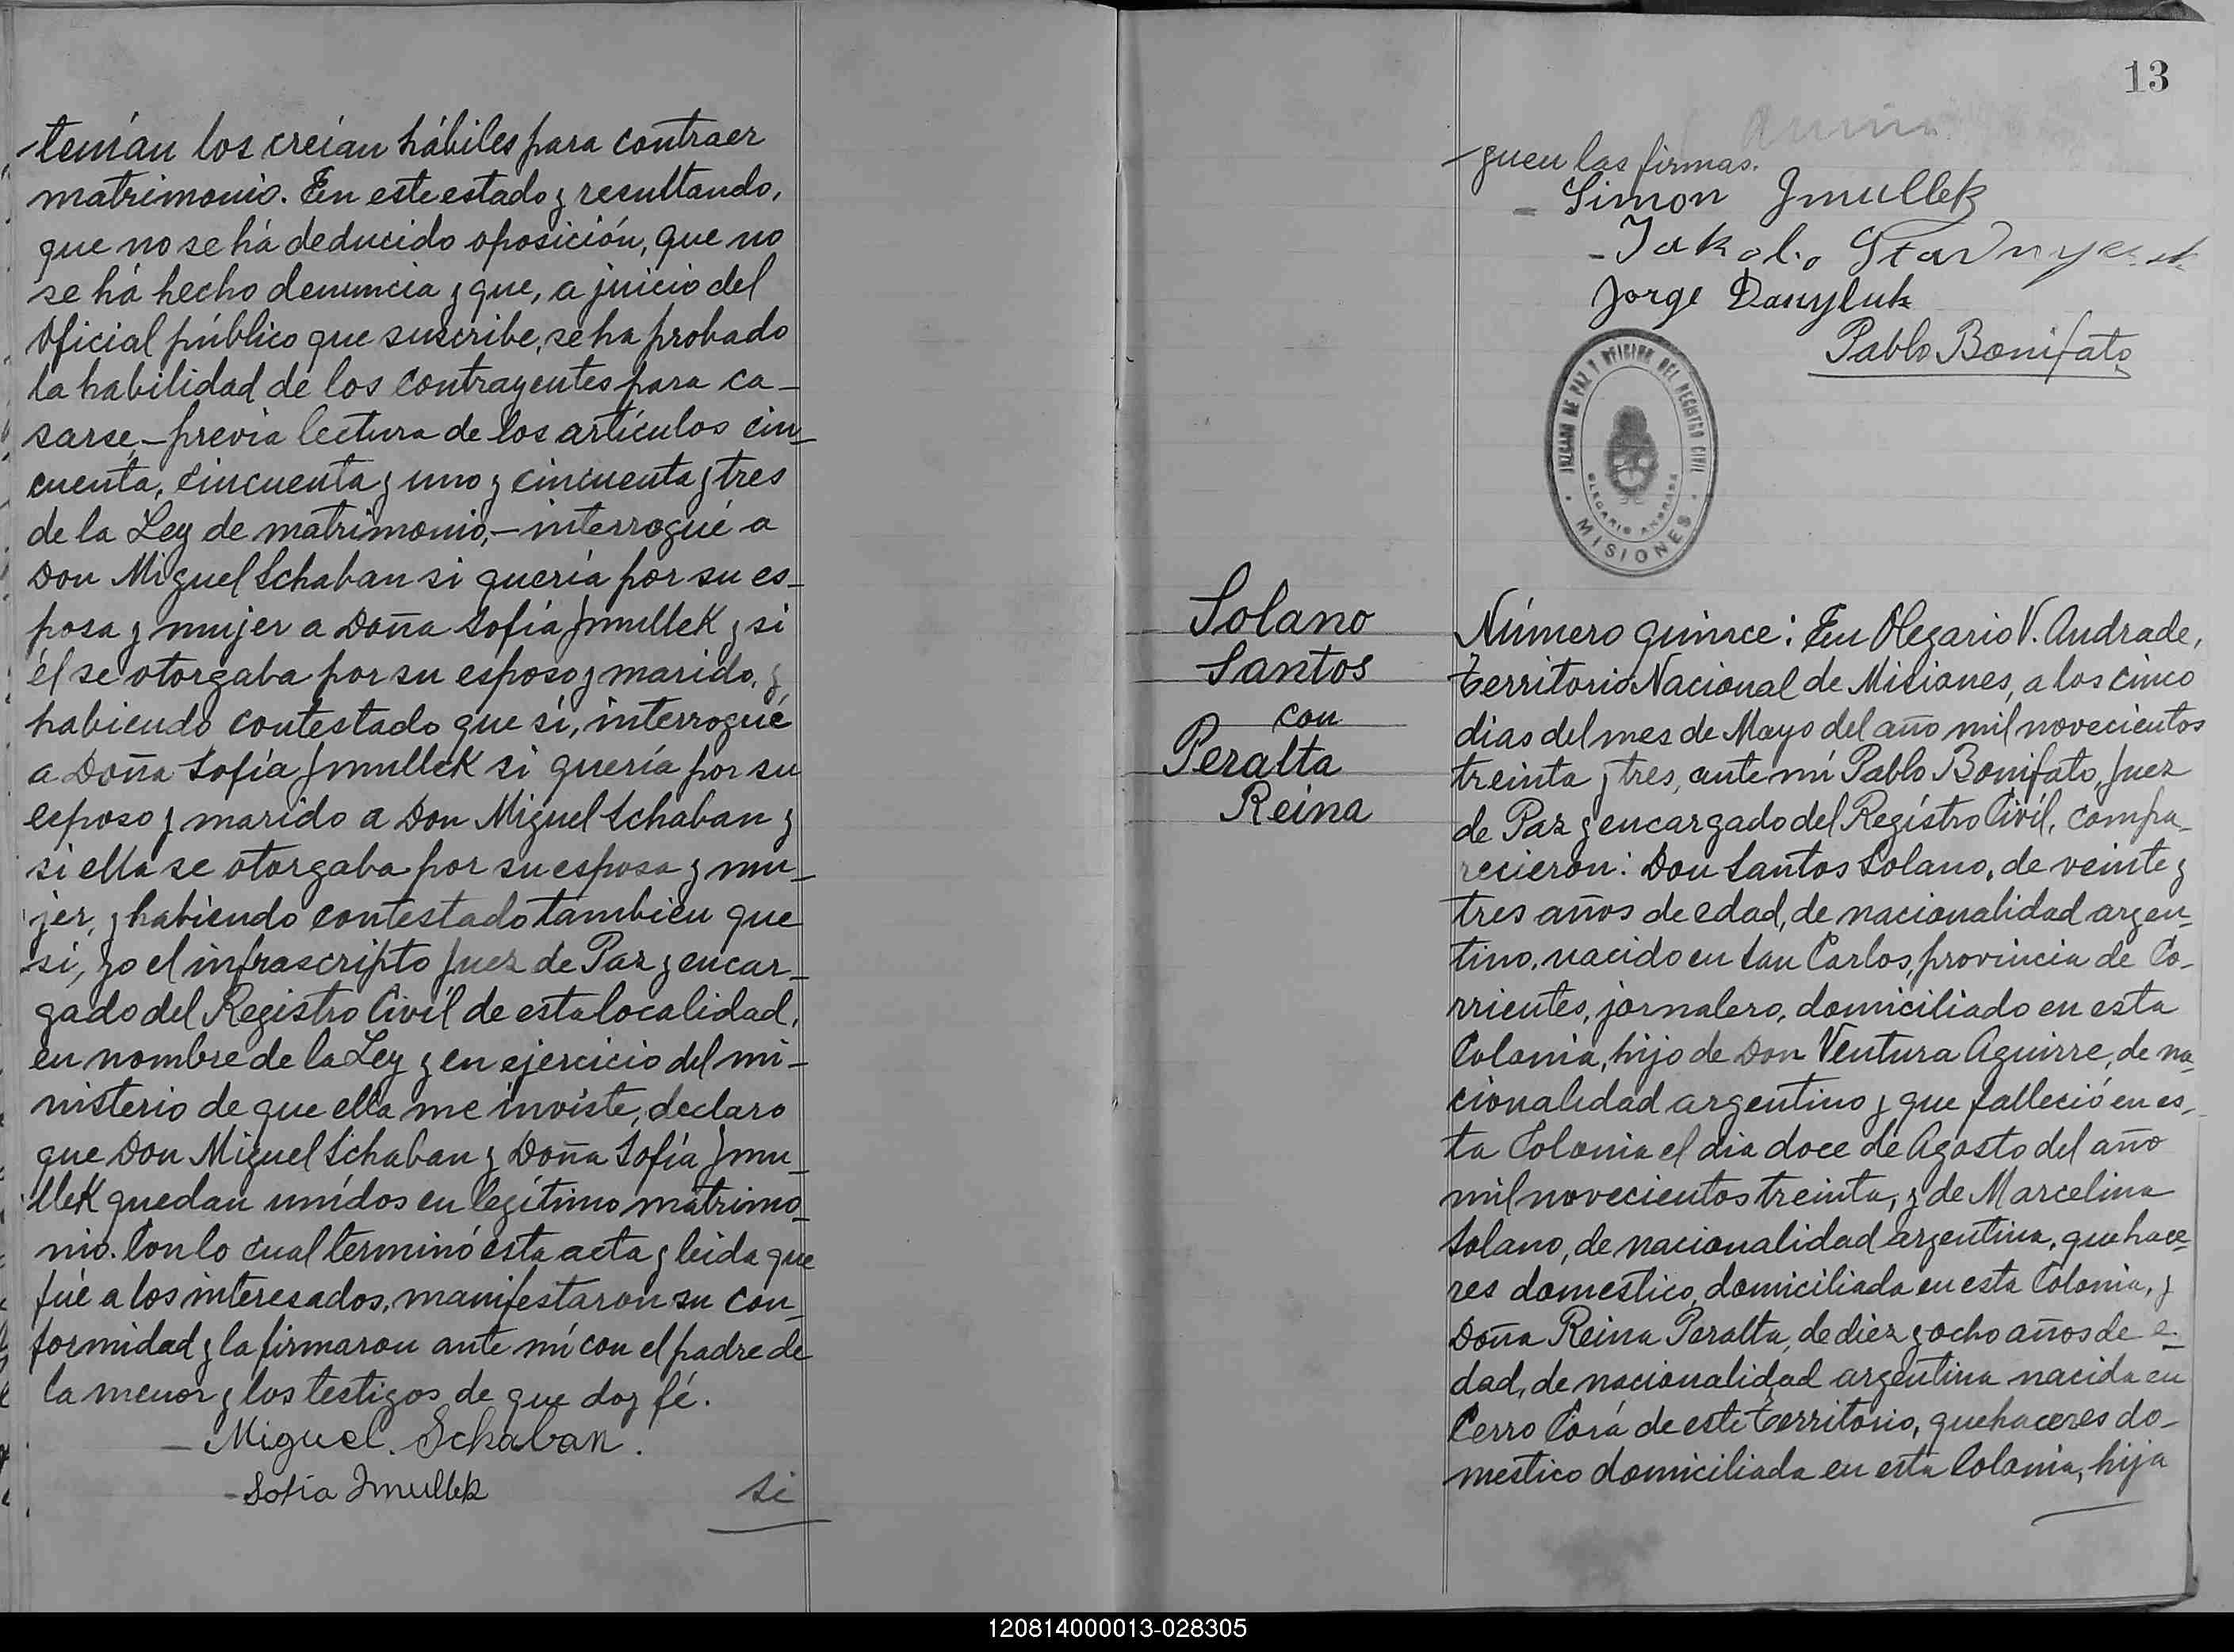 tenían los creían hábiles para contraer
matrimonio. En este estado y resultando,
que no se há deducido oposición, que no
se há hecho denuncia y que, a juicio del
Oficial público que suscribe, se ha probado
la habilidad de los contrayentes para ca-
sarse,- previa lectura de los artículos cin-
cuenta, cincuenta y uno y cincuenta y tres
de la Ley de matrimonio,- interrogué a
Don Miguel Schaban si quería por su es-
posa y mujer a Doña Sofía Jmullek y si
él se otorgaba por su esposo y marido, y
habiendo contestado que sí, interrogué
a Doña Sofía Jmullek si quería por su
esposo y marido a Don Miguel Schaban y
si ella se otorgaba por su esposa y mu-
jer, y habiendo contestado tambien que
sí, yo el infrascripto Juez de Paz y encar-
gado del Registro Civíl de esta localidad,
en nombre de la Ley y en ejercicio del mi-
nisterio de que ella me inviste, declaro
que Don Miguel Schaban y Doña Sofía Jmu-
llek quedan unídos en legítimo matrimo-
nio. Con lo cual terminó esta acta y leida que
fué a los interesados, manifestaron su con-
formidad y la firmaron ante mí con el padre de
la menor y los testigos de que doy fé.
- Miguel. Schaban.
- Sofia Jmullek
si
13
-guen las firmas.
- Simon Jmullek
- Jakob
Jorge Danyluk
Pablo Bonifato
JUZGADO DE PAZ Y OFICINA DEL REGISTRO CIVIL
OLEGARIO ANDRADE
MISIONES
Solano
Santos
con
Peralta
Reina
Número quince: En Olegario V. Andrade,
Territorio Nacional de Misiones, a los cinco
dias del mes de Mayo del año mil novecientos
treinta y tres, ante mí Pablo Bonifato, Juez
de Paz y encargado del Regístro Civíl, compa-
recieron: Don Santos Solano, de veinte y
tres años de edad, de nacionalidad argen-
tino, nacido en San Carlos, provincia de Co-
rrientes, jornalero, domiciliado en esta
Colonia, hijo de Don Ventura Aguirre, de na-
cionalidad argentino y que falleció en es-
ta Colonia el dia doce de Agosto del año
mil novecientos treinta, y de Marcelina
Solano, de nacionalidad argentina, quehace-
res domestico, domiciliada en esta Colonia, y
Doña Reina Peralta, de diez y ocho años de e-
dad, de nacionalidad argentina nacida en
Cerro Corá de este territorio, quehaceres do-
mestico domiciliada en esta Colonia, hija
120814000013-028305